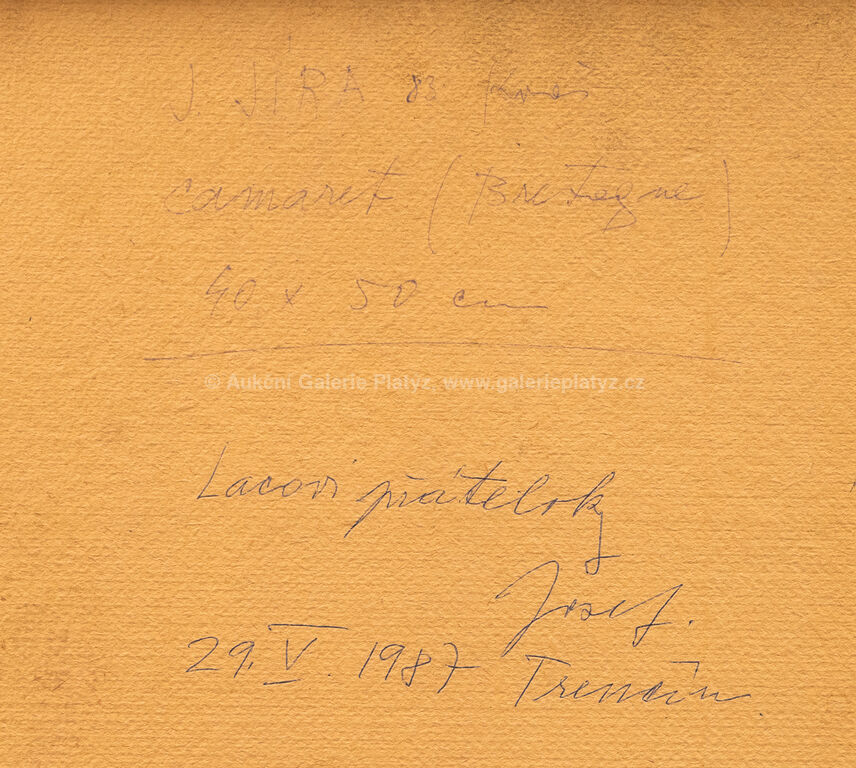 J. JÍRA 83
camaret (Bretagne)
40 x 50 cm
© Aukční Galerie Platýz, www.galerieplatyz.cz
Lacovi přátelsky
Josef.
29. V. 1987 Trenčín